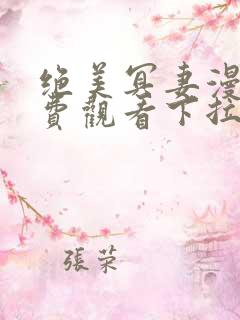 绝美冥妻漫
費觀看下拉
張荣